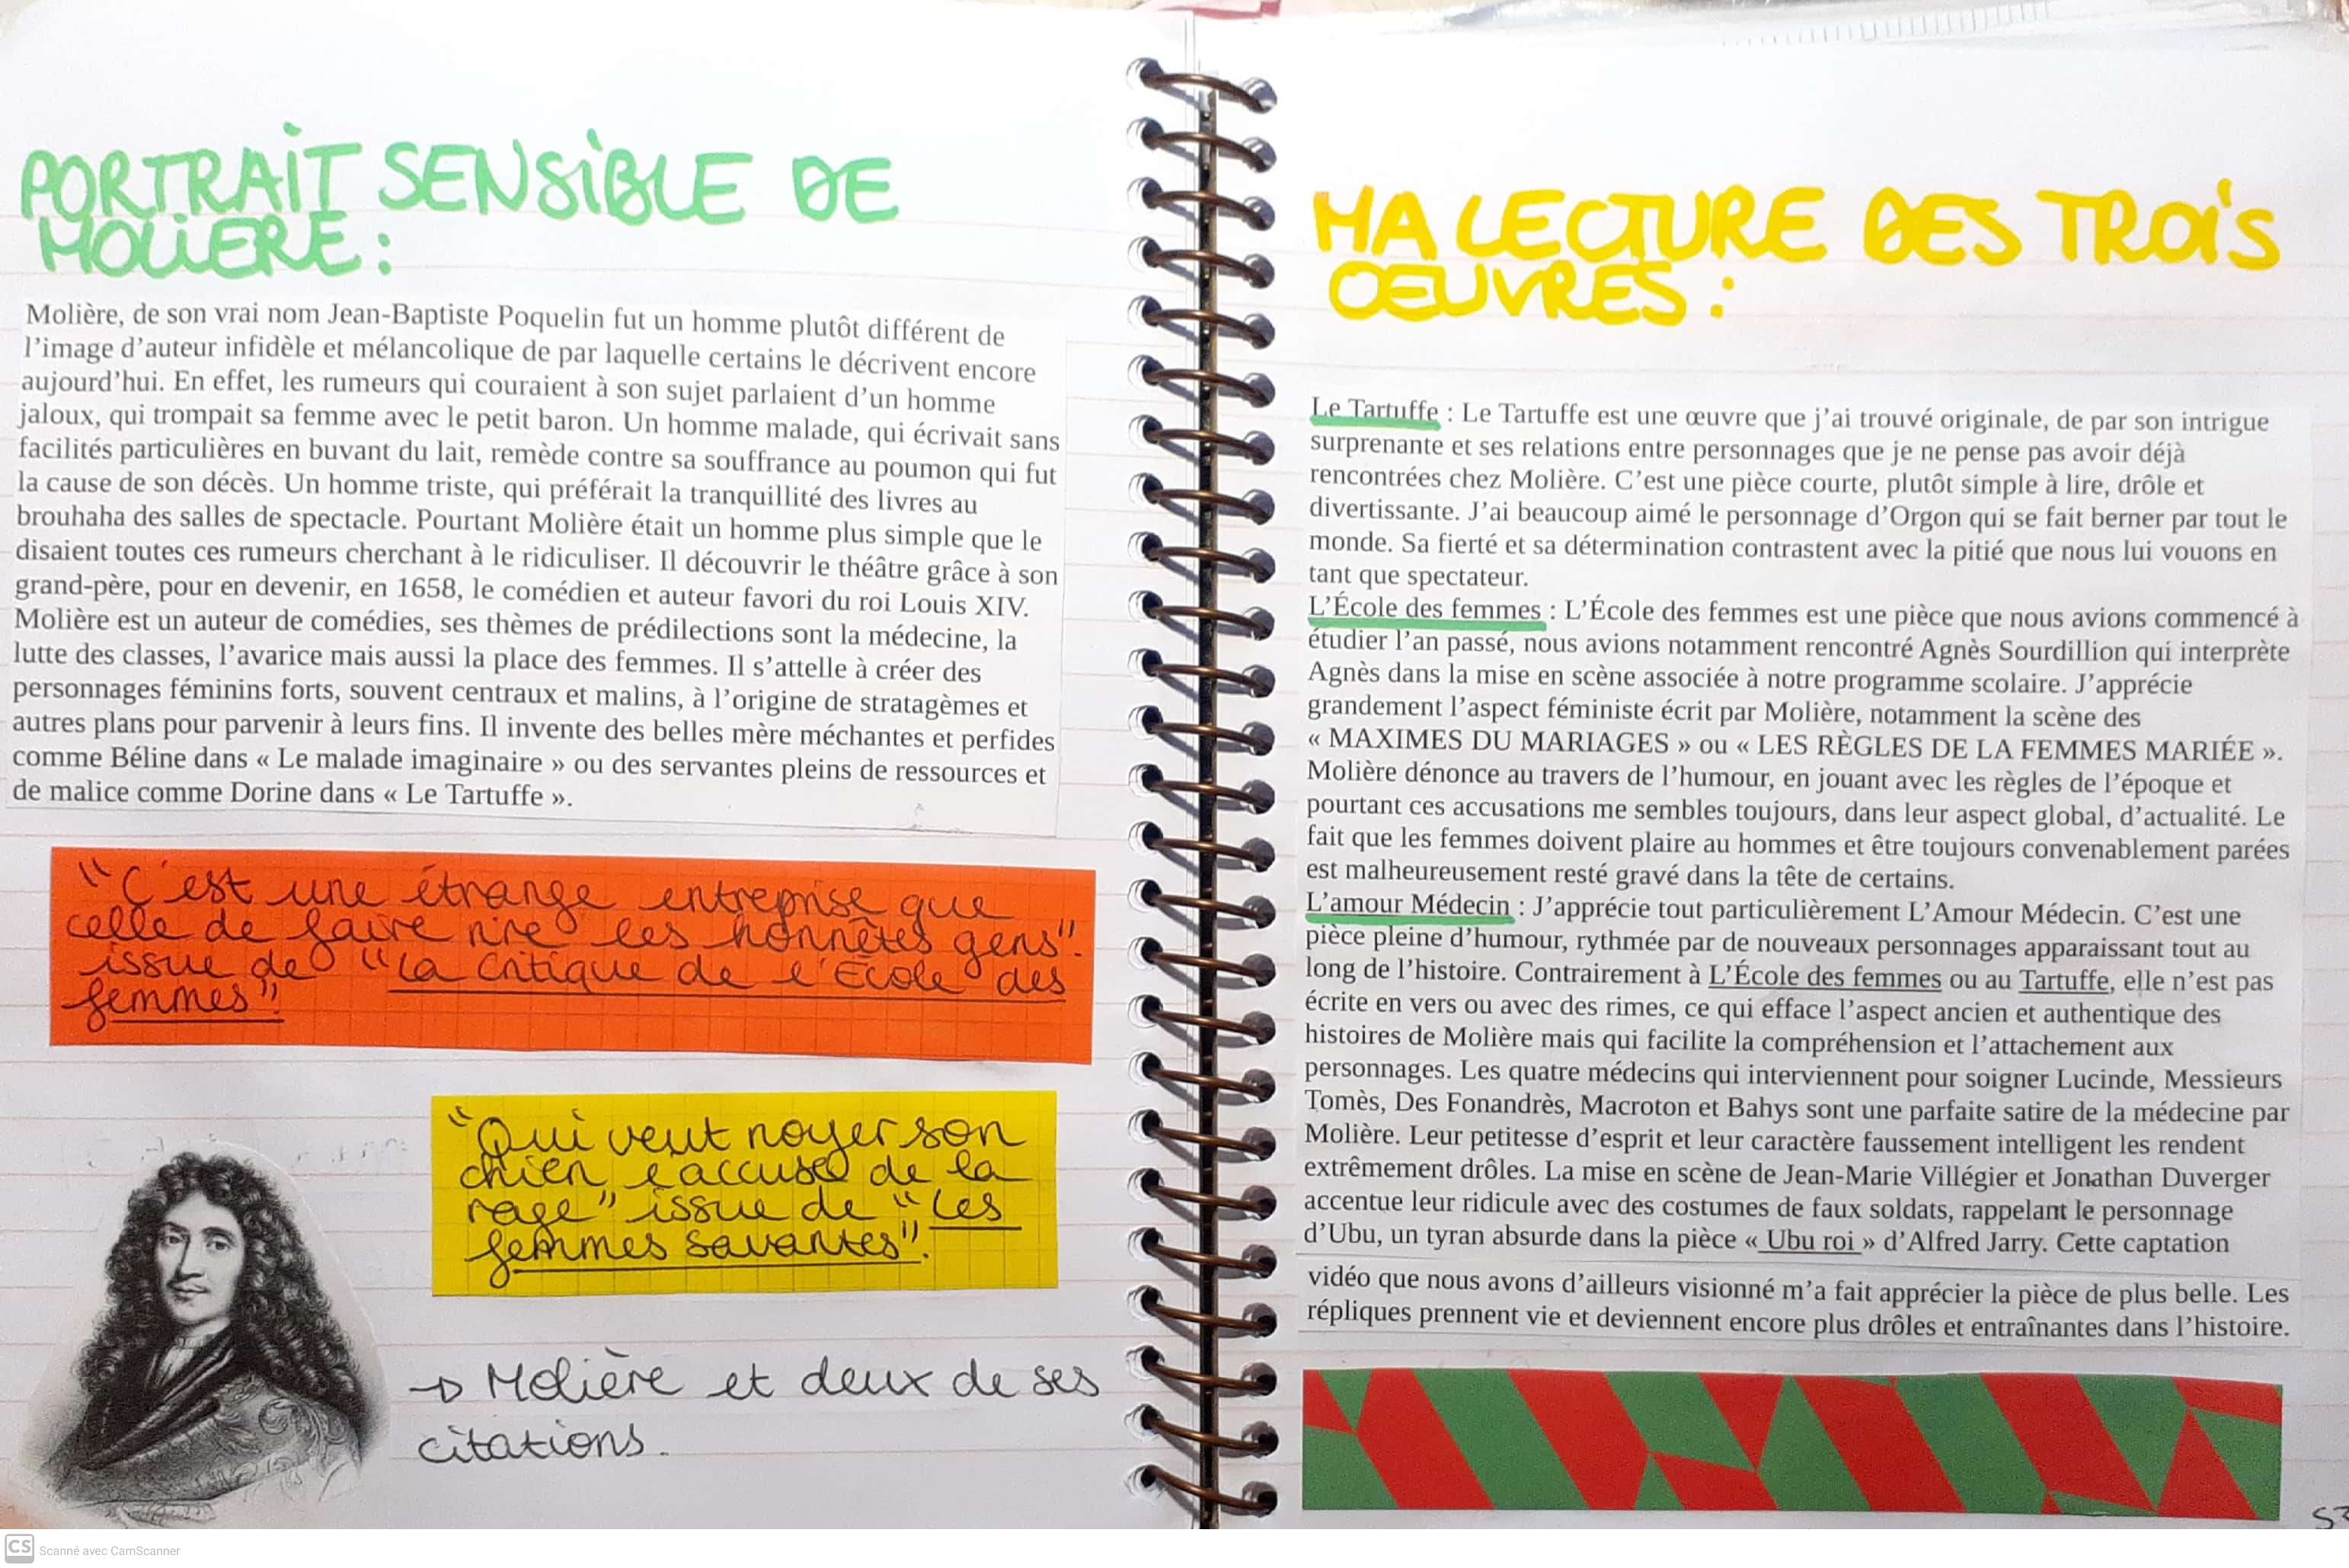 PORTRAIT SENSIBLE DE
MOLIERE :
Molière, de son vrai nom Jean-Baptiste Poquelin fut un homme plutôt différent de
l'image d'auteur infidèle et mélancolique de par laquelle certains le décrivent encore
aujourd'hui. En effet, les rumeurs qui couraient à son sujet parlaient d'un homme
jaloux, qui trompait sa femme avec le petit baron. Un homme malade, qui écrivait sans
facilités particulières en buvant du lait, remède contre sa souffrance au poumon qui fut
la cause de son décès. Un homme triste, qui préférait la tranquillité des livres au
brouhaha des salles de spectacle. Pourtant Molière était un homme plus simple que le
disaient toutes ces rumeurs cherchant à le ridiculiser. Il découvrir le théâtre grâce à son
grand-père, pour en devenir, en 1658, le comédien et auteur favori du roi Louis XIV.
Molière est un auteur de comédies, ses thèmes de prédilections sont la médecine, la
lutte des classes, l'avarice mais aussi la place des femmes. Il s'attelle à créer des
personnages féminins forts, souvent centraux et malins, à l'origine de stratagèmes et
autres plans pour parvenir à leurs fins. Il invente des belles mère méchantes et perfides
comme Béline dans « Le malade imaginaire » ou des servantes pleins de ressources et
de malice comme Dorine dans « Le Tartuffe ».
"C'est une étrange entreprise que
celle de faire rire les honnêtes gens".
issue de "La Critique de l'École des
femmes".
"Qui veut noyer son
chien l'accuse de la
rage" issue de "Les
femmes savantes".
→ Molière et deux de ses
citations.
MA LECTURE DES TROIS
ŒUVRES :
Le Tartuffe : Le Tartuffe est une œuvre que j'ai trouvé originale, de par son intrigue
surprenante et ses relations entre personnages que je ne pense pas avoir déjà
rencontrées chez Molière. C'est une pièce courte, plutôt simple à lire, drôle et
divertissante. J'ai beaucoup aimé le personnage d'Orgon qui se fait berner par tout le
monde. Sa fierté et sa détermination contrastent avec la pitié que nous lui vouons en
tant que spectateur.
L'École des femmes : L'École des femmes est une pièce que nous avions commencé à
étudier l'an passé, nous avions notamment rencontré Agnès Sourdillion qui interprète
Agnès dans la mise en scène associée à notre programme scolaire. J'apprécie
grandement l'aspect féministe écrit par Molière, notamment la scène des
« MAXIMES DU MARIAGES » ou « LES RÈGLES DE LA FEMMES MARIÉE ».
Molière dénonce au travers de l'humour, en jouant avec les règles de l'époque et
pourtant ces accusations me sembles toujours, dans leur aspect global, d'actualité. Le
fait que les femmes doivent plaire au hommes et être toujours convenablement parées
est malheureusement resté gravé dans la tête de certains.
L'amour Médecin : J'apprécie tout particulièrement L'Amour Médecin. C'est une
pièce pleine d'humour, rythmée par de nouveaux personnages apparaissant tout au
long de l'histoire. Contrairement à L'École des femmes ou au Tartuffe, elle n'est pas
écrite en vers ou avec des rimes, ce qui efface l'aspect ancien et authentique des
histoires de Molière mais qui facilite la compréhension et l'attachement aux
personnages. Les quatre médecins qui interviennent pour soigner Lucinde, Messieurs
Tomès, Des Fonandrès, Macroton et Bahys sont une parfaite satire de la médecine par
Molière. Leur petitesse d'esprit et leur caractère faussement intelligent les rendent
extrêmement drôles. La mise en scène de Jean-Marie Villégier et Jonathan Duverger
accentue leur ridicule avec des costumes de faux soldats, rappelant le personnage
d'Ubu, un tyran absurde dans la pièce « Ubu roi » d'Alfred Jarry. Cette captation
vidéo que nous avons d'ailleurs visionné m'a fait apprécier la pièce de plus belle. Les
répliques prennent vie et deviennent encore plus drôles et entraînantes dans l'histoire.
CS Scanné avec CamScanner